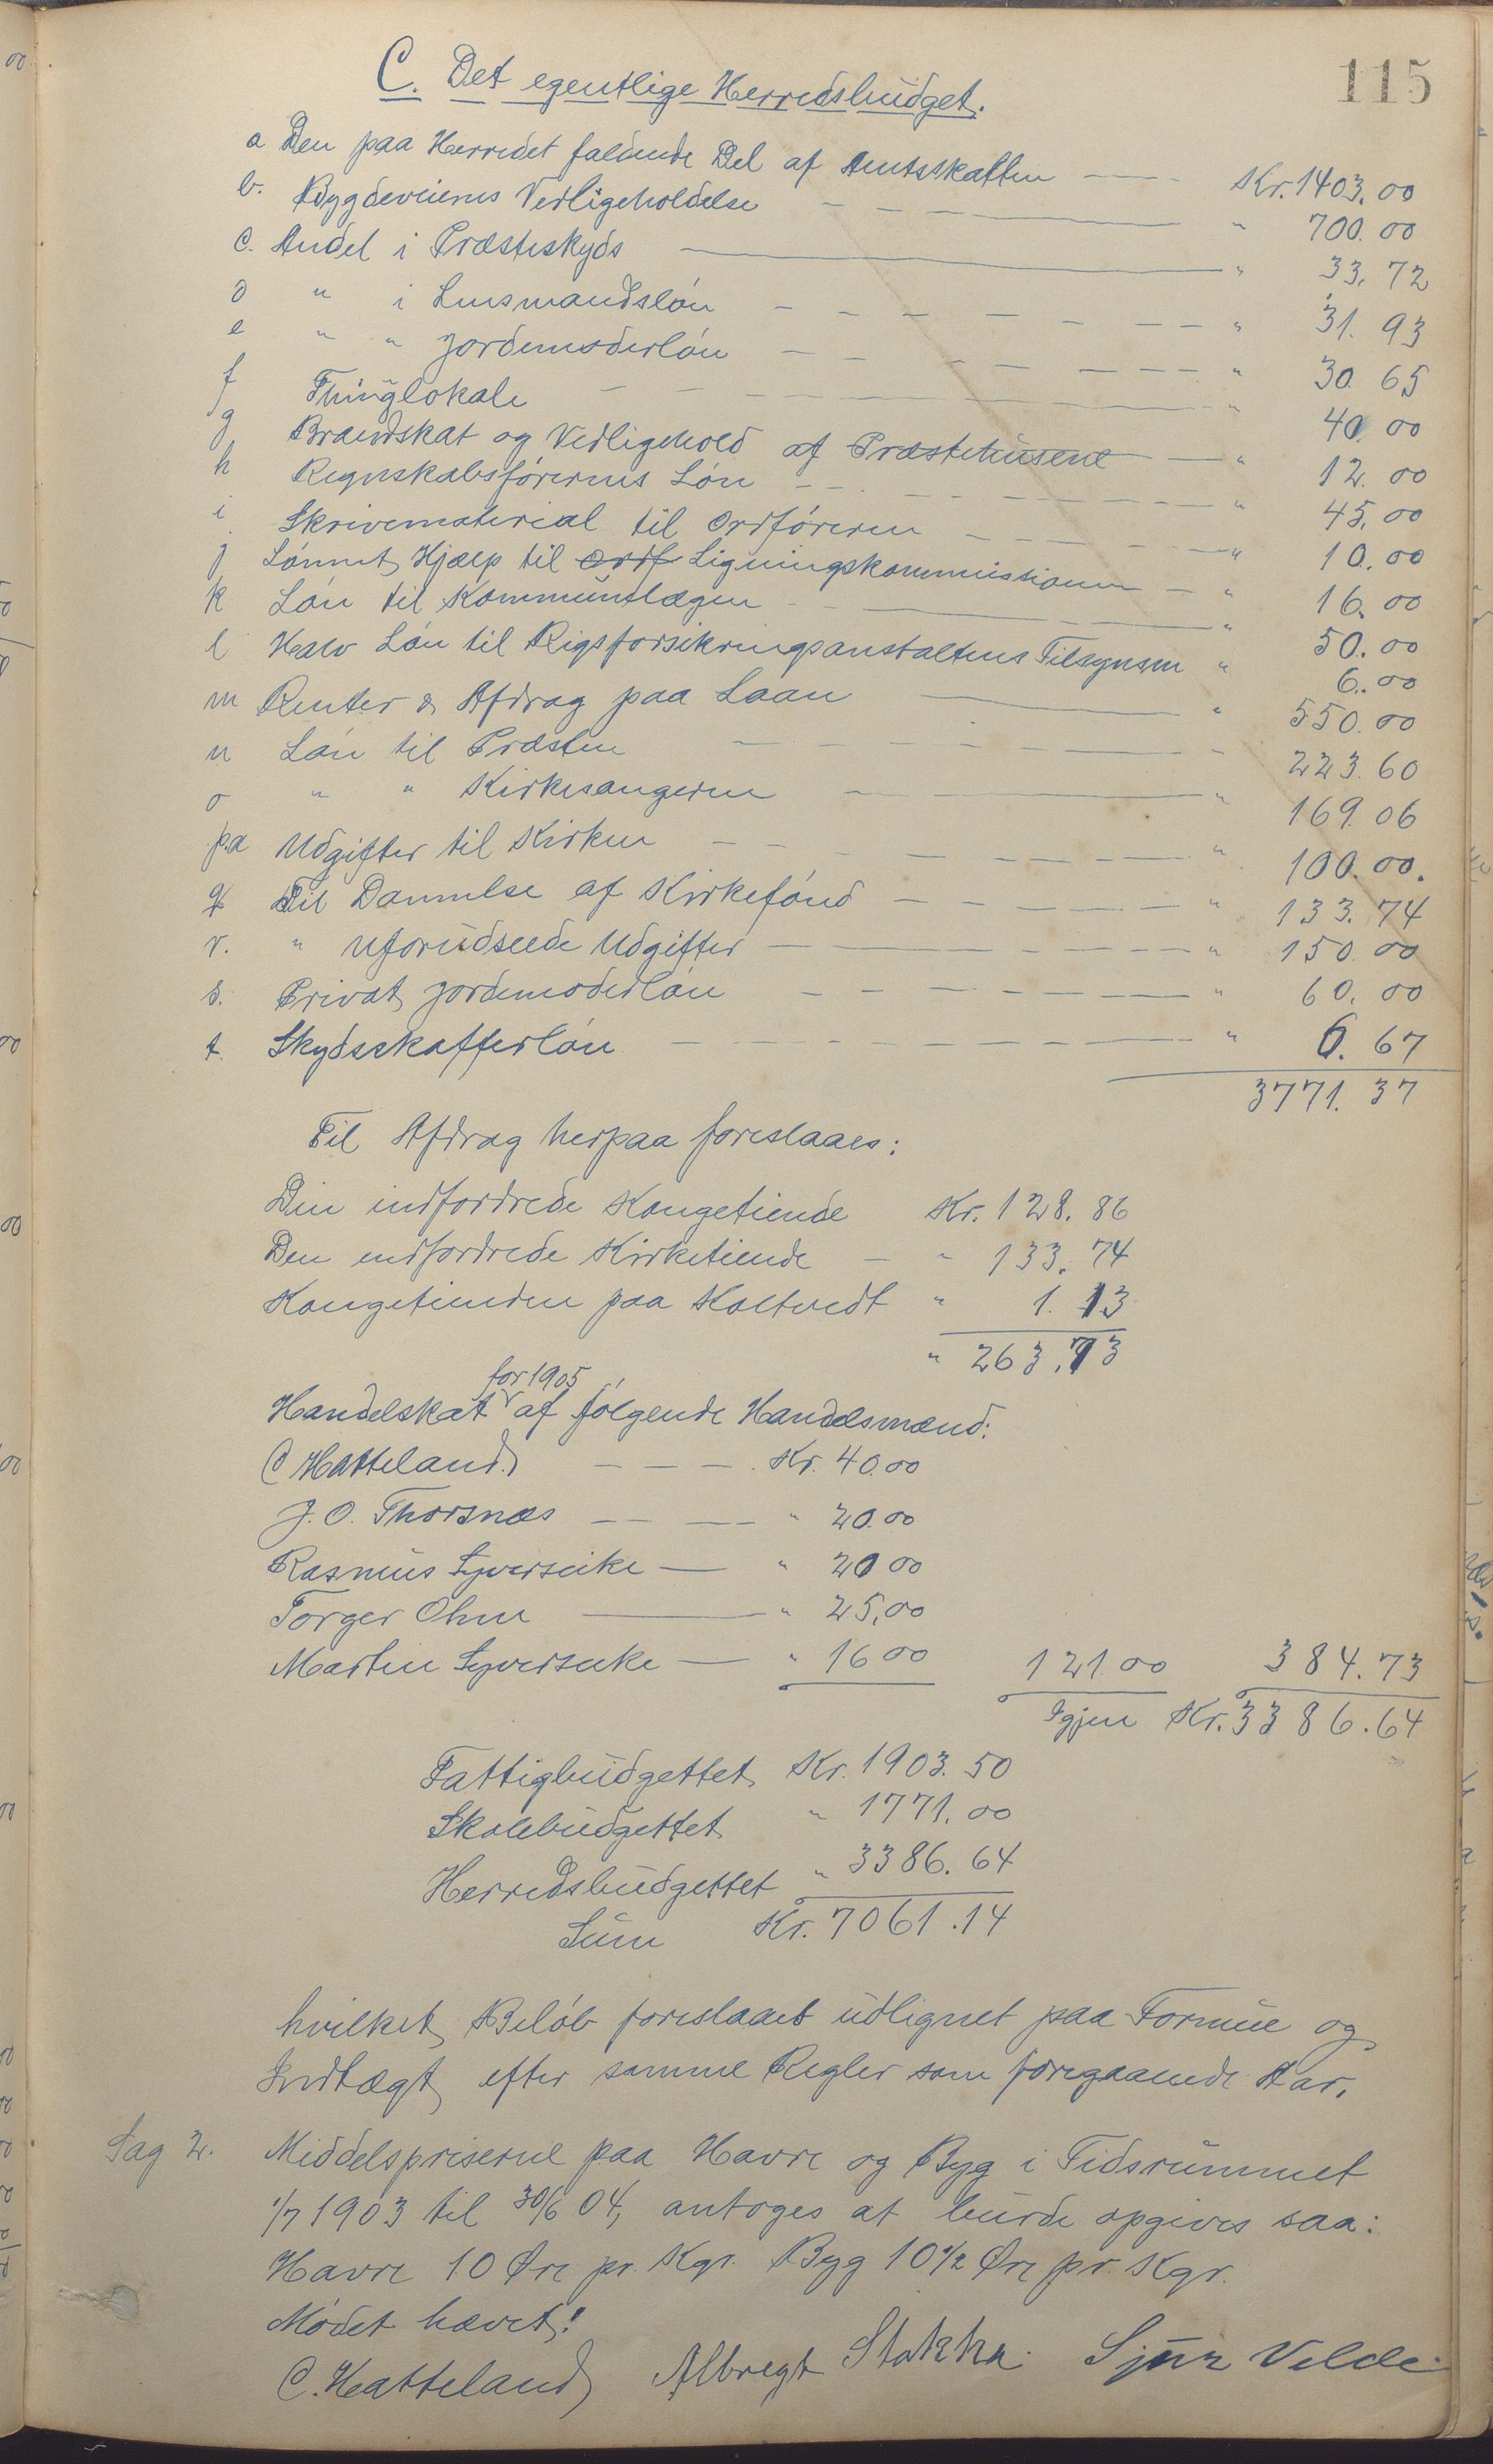 115
C. Det egentlige Herredsbudget.
a Den paa Herredet faldende Del af Amtsskatten — Kr. 1403.00
b. Bygdeveienes Vedligeholdelse — " 700.00
c. Andel i Præsteskyds — " 33.72
d " i Lensmandsløn — " 31.93
e " " Jordemoderløn — " 30.65
f Thinglokale — " 40.00
g Brandskat og Vedligehold af Præstehusene — " 12.00
h Regnskabsførerens Løn — " 45.00
i Skrivematerial til Ordføreren — " 10.00
j Lønnet Hjælp til Ordf Ligningskommissionen — " 16.00
k Løn til Kommunelægen — " 50.00
l Halv Løn til Rigsforsikringsanstaltens Tilsynsm " 6.00
m Renter & Afdrag paa Laan — " 550.00
n Løn til Præsten — " 223.60
o " " Kirkesangeren — " 169.06
pa Udgifter til Kirken — " 100.00.
q Til Dannelse af Kirkefond — " 133.74
r. " Uforudseede Udgifter — " 150.00
s. Privat Jordemoderløn — " 60.00
t. Skydsskafferløn — " 6.67
3771.37
Til Afdrag herpaa foreslaaes:
Den indfordrede Kongetiende Kr. 128.86
Den indfordrede Kirketiende — " 133.74
Kongetienden paa Koltvedt " 1.13
" 263.73
for 1905
Handelskat af følgende Handelsmænd:
C Hatteland. — Kr. 40.00
J. O. Thorsnæs — " 20.00
Rasmus Syverseike — " 20 00
Torger Ohm — " 25,00
Martin Syverseike — " 16 00 121.00 384.73
Igjen Kr. 3386.64
Fattigbudgettet Kr. 1903.50
Skolebudgettet " 1771.00
Herredsbudgettet " 3386.64
Sum Kr. 7061.14
hvilket Beløb foreslaaes udlignet paa Formue og
Indtægt efter samme Regler som foregaaende Aar.
Sag 2. Middelspriserne paa Havre og Byg i Tidsrummet
1/7 1903 til 30/6 04, antoges at burde opgives saa:
Havre 10 Øre pr. Kgr. Byg 10 1/2 Øre pr. Kgr.
Mødet hævet!
C. Hatteland Albregt Stakka. Sjur Velde